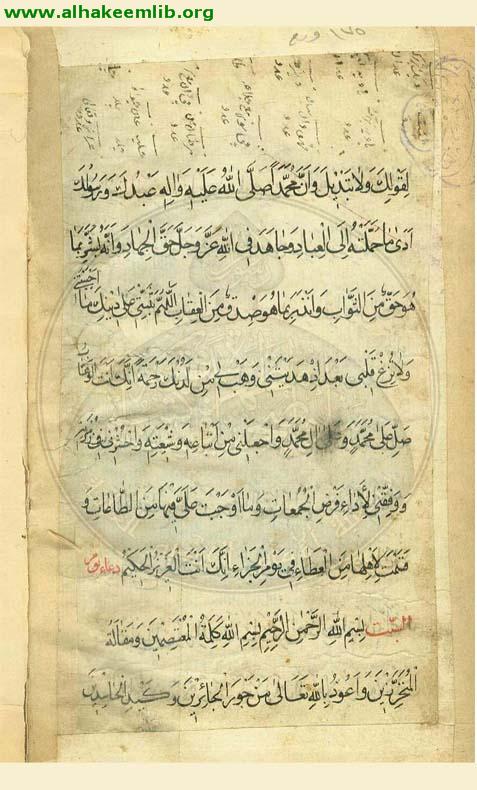 www.alhakeemlib.org
لِقَوْلِكَ وَلَا تَبْدِيلَ وَأَنَّ مُحَمَّدًا صَلَّى اللهُ عَلَيْهِ وَاٰلِهِ عَبْدُكَ وَرَسُولُكَ
اَدّٰى مَا حَمَّلْتَهُ اِلَى الْعِبَادِ وَجَاهَدَ فِي اللهِ عَزَّ وَجَلَّ حَقَّ الْجِهَادِ وَاَنَّهُ بَشَّرَ بِمَا
هُوَ حَقٌّ مِنَ الثَّوَابِ وَاَنْذَرَ بِمَا هُوَ صِدْقٌ مِنَ الْعِقَابِ اَللّٰهُمَّ ثَبِّتْنِي عَلٰى دِينِكَ مَا اَحْيَيْتَنِي
وَلَا تُزِغْ قَلْبِي بَعْدَ اِذْ هَدَيْتَنِي وَهَبْ لِي مِنْ لَدُنْكَ رَحْمَةً اِنَّكَ اَنْتَ الْوَهَّابُ
صَلِّ عَلٰى مُحَمَّدٍ وَعَلٰى اٰلِ مُحَمَّدٍ وَاجْعَلْنِي مِنْ اَتْبَاعِهِ وَشِيعَتِهِ وَاحْشُرْنِي فِي زُمْرَتِهِ
وَوَفِّقْنِي لِاَدَاءِ فَرْضِ الْجُمُعَاتِ وَمَا اَوْجَبْتَ عَلَيَّ فِيهَا مِنَ الطَّاعَاتِ وَ
قَسَمْتَ لِاَهْلِهَا مِنَ الْعَطَاءِ فِي يَوْمِ الْجَزَاءِ اِنَّكَ اَنْتَ الْعَزِيزُ الْحَكِيمُ دعاء يوم
السبت بِسْمِ اللهِ الرَّحْمٰنِ الرَّحِيمِ بِسْمِ اللهِ كَلِمَةُ الْمُعْتَصِمِينَ وَمَقَالَةُ
الْمُتَحَرِّزِينَ وَاَعُوذُ بِاللهِ تَعَالٰى مِنْ جَوْرِ الْجَائِرِينَ وَكَيْدِ الْحَاسِدِينَ